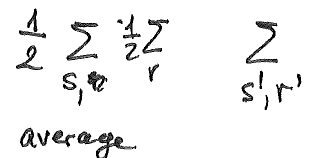 ½ ∑ ½ ∑ ∑
s, r s', r'
average